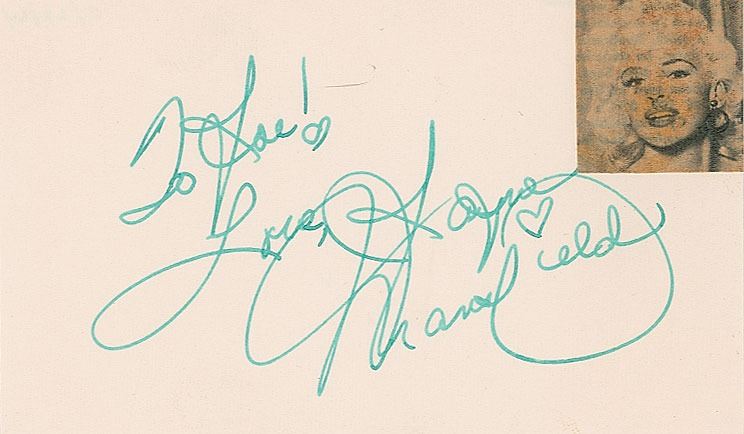 To Joe!
Love, Jayne
Mansfield